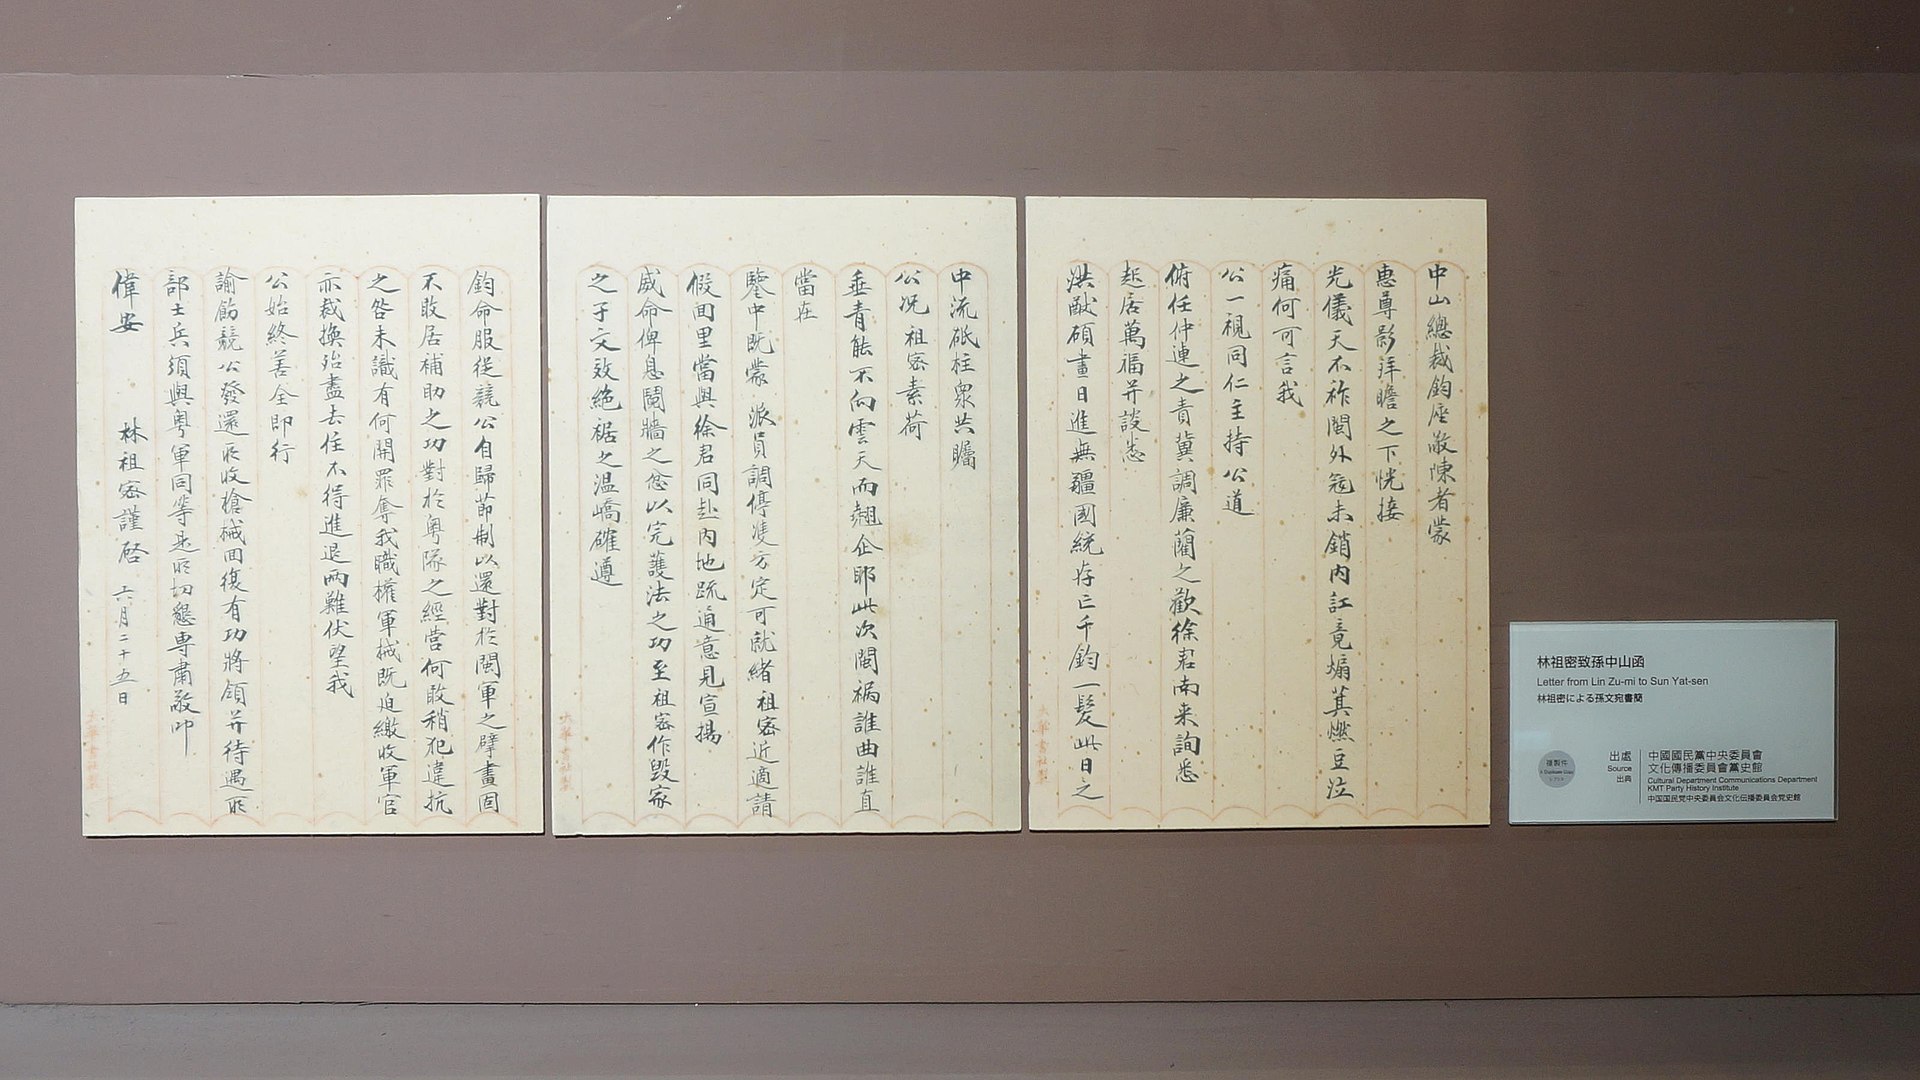 中山總裁鈞座敬陳者蒙
惠尊影拜瞻之下恍接
光儀天不祚閩外寇未銷內訌竟煽萁燃豆泣
痛何可言我
公一視同仁主持公道
俯任仲連之責冀調廉藺之歡徐君南来詢悉
起居萬福并談悉
洪猷碩畫日進無疆國統存亡千鈞一髮此日之
大華書社製
中流砥柱衆共矚
公况祖密素荷
垂青能不向雲天而翹企耶此次閩禍誰曲誰直
當在
鑒中既蒙派員調停雙方定可就緒祖密近適請
假回里當與徐君同赴內地疏通意見宣揚
威命俾息鬩牆之忿以完護法之功至祖密作毀家
之子文效絕裾之溫嶠確遵
大華書社製
鈞命服從競公自歸節制以還對於閩軍之擘畫固
不敢居補助之功對於粵隊之經營何敢稍犯違抗
之咎未識有何開罪奪我職權軍械既迫繳收軍官
亦裁換殆盡去住不得進退兩難伏望我
公始終善全即行
諭飭競公發還所收槍械回復有功將領并待遇所
部士兵須與粵軍同等是所切懇專肅敬叩
偉安 林祖密謹啓 六月二十五日
大華書社製
林祖密致孫中山函
Letter from Lin Zu-mi to Sun Yat-sen
林祖密による孫文宛書簡
複製件
出處
Source
出典
中國國民黨中央委員會
文化傳播委員會黨史館
Cultural Department Communications Department
KMT Party History Institute
中国国民党中央委員会文化伝播委員会党史館